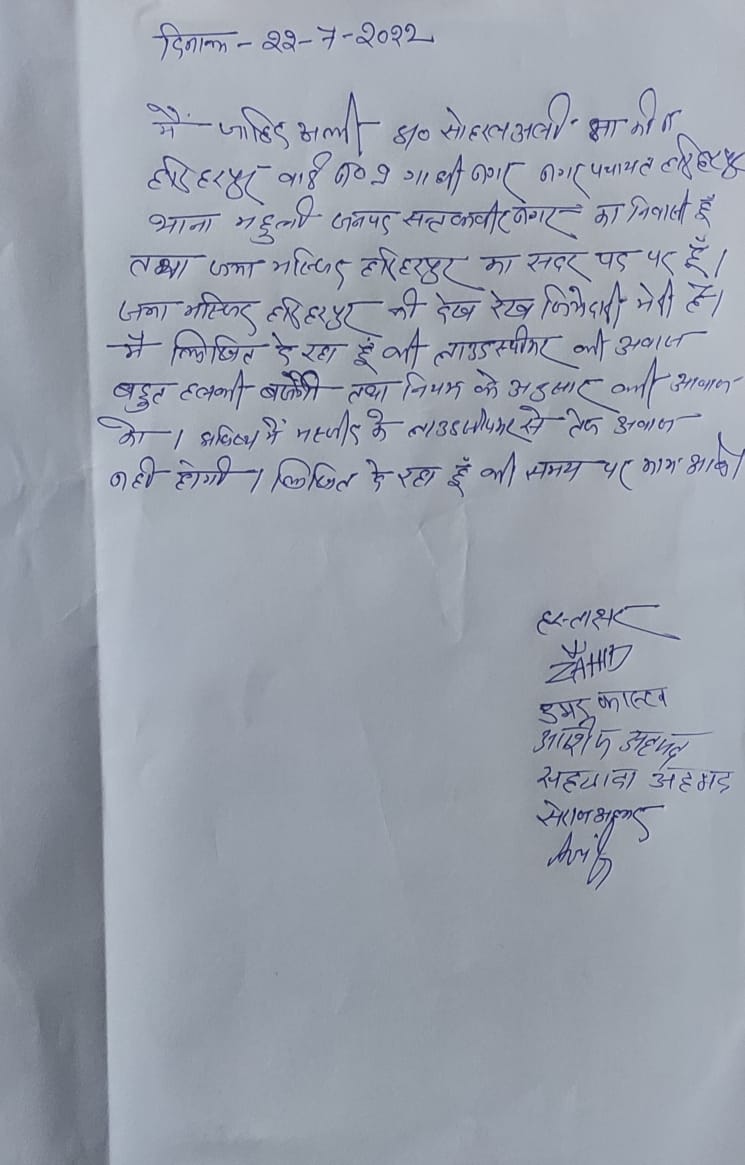 दिनांक - २२-7-2022
मैं जाहिद अली S/० सोहरत अली
हरिहरपुर वार्ड न० 9 गांधी नगर नगर पंचायत हरिहरपुर
थाना महुली जनपद सन्तकबीरनगर का निवासी हूँ
तथा जामा मस्जिद हरिहरपुर का सदर पद पर हूँ।
जामा मस्जिद हरिहरपुर की देख रेख जिमेदारी मेरी है।
मैं लिखित दे रहा हूँ की लाउडस्पीकर की अवाज
बहुत हलकी बजेगी तथा नियम के अनुसार की आवाज
। भविष्य में मस्जीद के लाउडस्पीकर से तेज अवाज
नही होगी। लिखित दे रहा हूँ की समय पर काम आवे।
हस्ताक्षर
ZAHID
आशीफ अहमद
अहमद